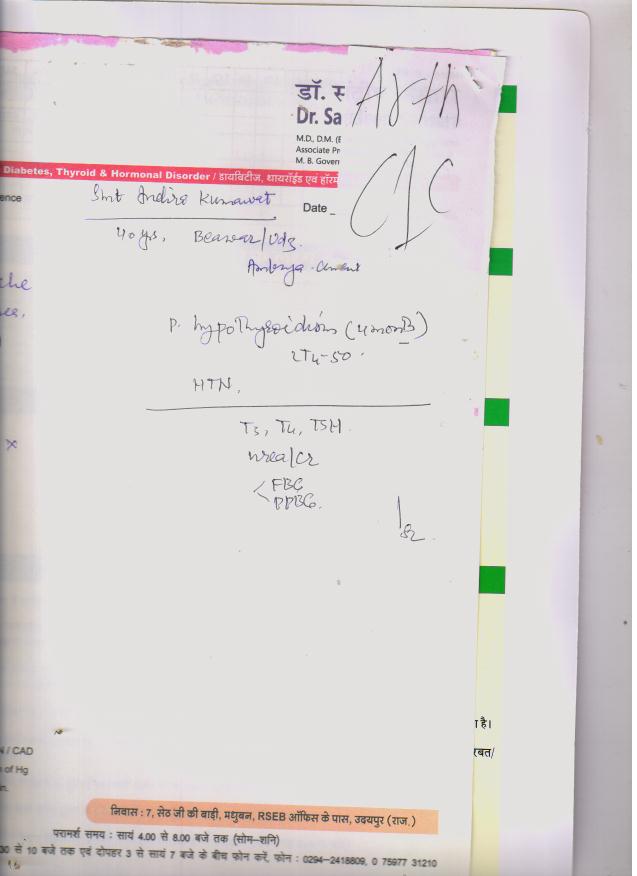 डॉ. स
Dr. Sa
Arth
M.D., D.M. (E
Associate Pr
M. B. Govern
Diabetes, Thyroid & Hormonal Disorder / डायबिटीज, थायरॉईड एवं हॉरम
CIC
ence
Smt Indira Kumawat
Date _
40 yrs, Beawar/Udz.
Ambuja Cement
the
P. hypothyroidism (4 months)
LT4-50.
HTN,
x
T3, T4, TSH.
urea/cr
FBG
PPBG.
ा है।
रबत/
N / CAD
n of Hg
in.
निवास : 7, सेठ जी की बाड़ी, मधुबन, RSEB ऑफिस के पास, उदयपुर (राज.)
परामर्श समय : सायं 4.00 से 8.00 बजे तक (सोम–शनि)
30 से 10 बजे तक एवं दोपहर 3 से सायं 7 बजे के बीच फोन करें, फोन : 0294-2418809, 0 75977 31210